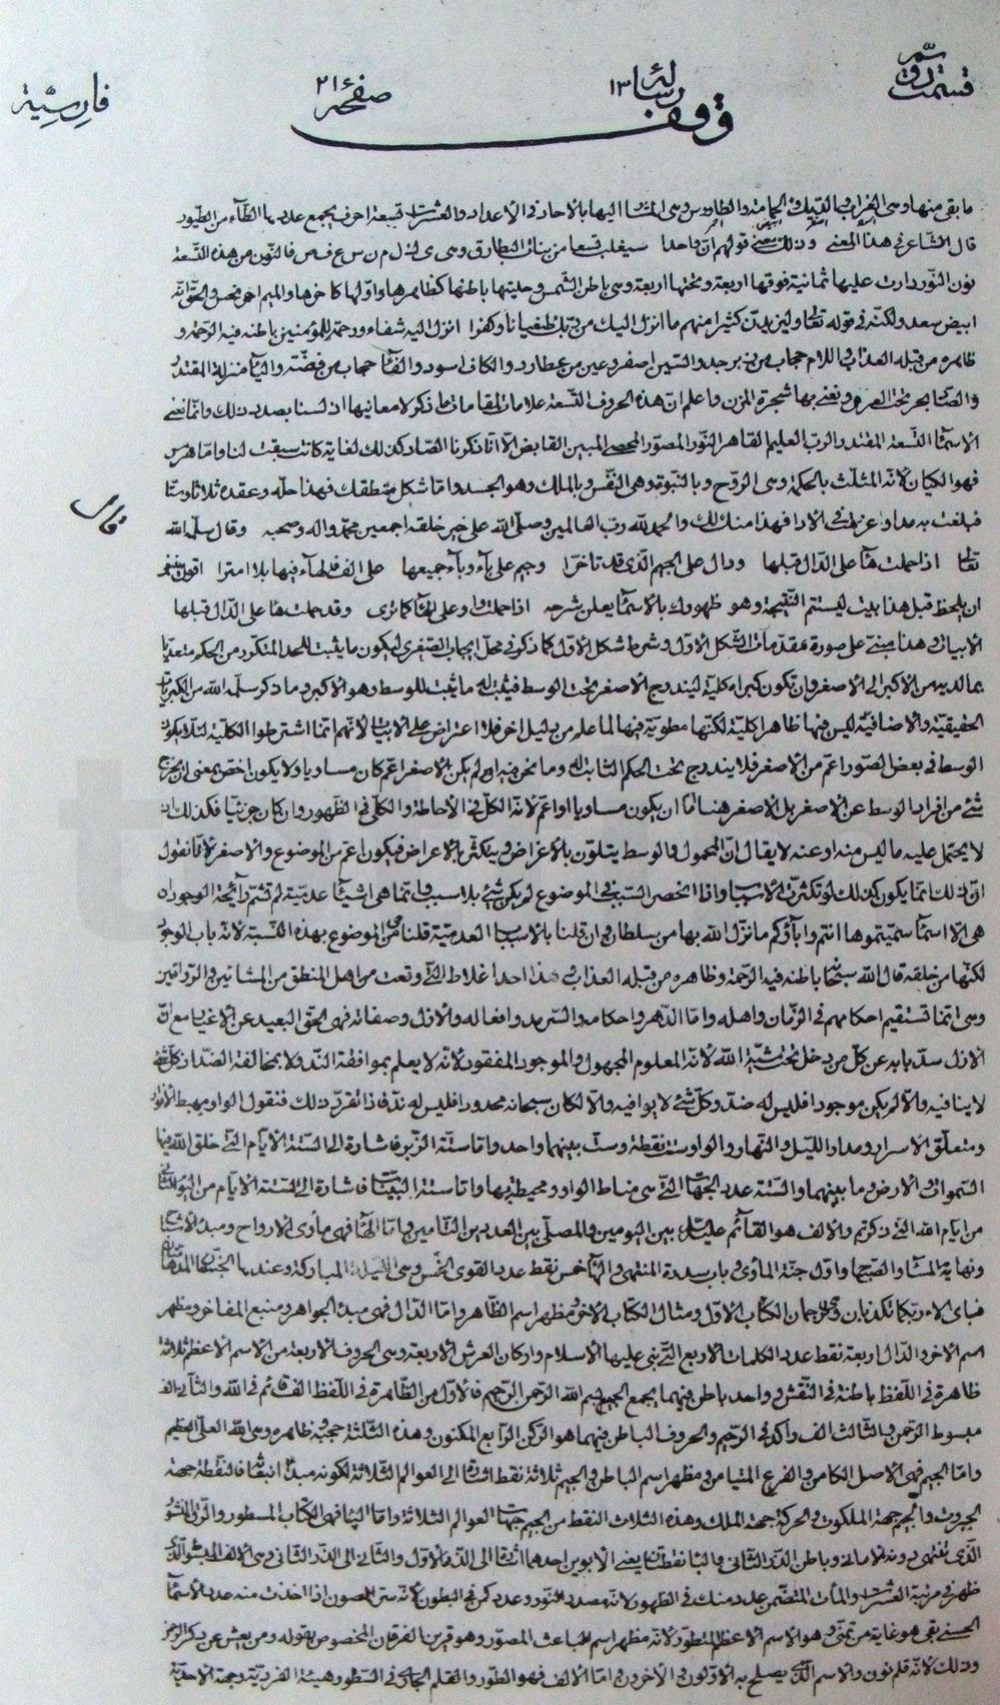 قسمت دوم
رسالهٔ ١٣
صفحهٔ ٢١
فارسیة
وقف
ما بقى منها وهى الغراب والديك والحمامة والطاووس وهى المشار اليها بالاحاد فى الاعداد والعشرات تسعة احرف يجمع عددها الطاء من الطيور
قال الشاعر فى هذا المعنى وذلك معنى قولهم ان واحدا سيغلب تسعا من بنات البطارق وهى ى ك ل م ن س ع ف ص فالنون من هذه التسعة
نون النور دارت عليها ثمانية فوقها اربعة وتحتها اربعة وهى باطن الشمس وحليتها باطنها كظاهرها واولها كاخرها والميم احمر نحس والحق انه
ابيض سعد ولكنه فى قوله تعالى وليزيدن كثيرا منهم ما انزل اليك من ربك طغيانا وكفرا انزل اليه شفاء ورحمة للمؤمنين باطنه فيه الرحمة و
ظاهره من قبله العذاب واللام حجاب من زبرجد والسين اصفر وعين من عطارد والكاف اسود والفاء حجاب من فضة والياء منزلة المقتدر
والصاد بحر تحت العرش ونعنى بها شجرة المزن واعلم ان هذه الحروف التسعة علامات لمقامات ما ذكر لا معانيها اذ لسنا بصدد ذلك وانما نعنى
الاسماء التسعة المقتدر والرب العليم القاهر النور المصور المحصى المبين القابض الا انا ذكرنا الصاد كذلك لغاية كانت سبقت لنا واما هرمس
فهو الكيان لانه المثلث بالحكمة وهى الروح وبالنبوة وهى النفس وبالملك وهو الجسد واما شكل منطقك فهذا حله وعقده ثلاثا وستا
فبلغت به مداوا عزيمتى فى الادا فهذا منك لك والحمد لله رب العالمين وصلى الله على خير خلقه اجمعين محمد واله وصحبه وقال سلمه الله
تعالى اذا حملت هاء على الدال قبلها ودال على الجيم الذى قد تاخرا وجيم على باء وباء جميعها على الف فالهاء فيها بلا امترا اقول ينبغى
ان يلحظ قبل هذا بيت ليستتم النتيجة وهو ظهورك بالاسماء يعلن شرحه اذا حملت واو على الهاء كما ترى وقد حملت هاء على الدال قبلها
الابيات وهذا مبنى على صورة مقدمات الشكل الاول وشرط شكل الاول كما ذكر فى محل ايجاب الصغرى ليكون ما يثبت للحد المتكرر من الحكم متعديا
بما لديه من الاكبر الى الاصغر وان تكون كبراه كلية ليندرج الاصغر تحت الوسط فيثبت له ما يثبت للوسط وهو الاكبر وما ذكر سلمه الله من الكبريات
الحقيقية والاضافية ليس فيها ظاهرا كلية لكنها مطوية فيها لما علم من دليل اخر فلا اعتراض على الابيات لانهم انما اشترطوا الكلية لئلا يكون
الوسط فى بعض الصور اعم من الاصغر فلا يندرج تحت الحكم الثابت له وما نحن فيه لم يكن الاصغر اعم كان مساويا ولا يكون اخص بمعنى ان يخرج
شئ من افراد الوسط عن الاصغر بل الاصغر هنا اما ان يكون مساويا او اعم لانه الكل فى الاحاطة والكلى فى الظهور وان كان جزئيا فكذلك اذ
لا يحتمل عليه ما ليس منه او عنه لا يقال ان المحمول والوسط يتلون بالاعراض ويتكثر بالاعراض فيكون اعم من الموضوع والاصغر لانا نقول
ان ذلك انما يكون كذلك لو تكثرت الاسباب واذا انحصر السبب فى الموضوع لم يكن شئ بلا سبب وانما هى اشياء عدمية لم تشم رائحة الوجود ان
هى الا اسماء سميتموها انتم واباؤكم ما نزل الله بها من سلطان وان قلنا بالاسباب العدمية قلنا هى من الموضوع بهذه النسبة لانه باب الوجود
لكنها من خلقه قال الله سبحانه باطنه فيه الرحمة وظاهره من قبله العذاب وهذا احد اغلاط التى وقعت من اهل المنطق من المشائين والرواقيين
وهى انما تستقيم احكامهم فى الزمان واهله واما الدهر واحكامه والسرمد وافعاله والازل وصفاته فهى الحق البعيد عن الاغيار مع ان
الازل سد بابه عن كل من دخل تحت مشية الله لانه المعلوم المجهول والموجود المفقود لانه لا يعلم بموافقة الند ولا بمخالفة الضد اذ كل شئ
لا ينافيه والا لم يكن موجودا فليس له ضد وكل شئ لا يوافيه والا لكان سبحانه محدودا فليس له ند فاذا تقرر ذلك فنقول الواو مهبط الانوار
ومتعلق الاسرار ومداد الليل والنهار والواو ست نقطة وست بينهما واحد واما ستة الزبر فاشارة الى الستة الايام التى خلق الله فيها
السموات والارض وما بينهما والستة عدد الجهات التى هى مناط الواو ومحيطة بها واما ستة البينات فاشارة الى الستة الايام من اليوم الثانى
من ايام الله الذى ذكرتم والالف هو القائم عليه السلام بين اليومين والمصلى بين العددين التامين واما الهاء فهى مأوى الارواح ومبدء الاشباح
ونهاية المساء والصباح واول جنة المأوى وباب سدرة المنتهى والهاء خمس نقط عدد القوى الخمس وهى الليلة المباركة وعندها الجنتان المدهامتان
فباى الاء ربكما تكذبان وهى ترجمان الكتاب الاول ومثال الكتاب الاخر ومظهر اسم الظاهر واما الدال فهى مبدء الجواهر ومنبع المفاخر ومظهر
اسم الاخر والدال اربعة نقط عدد الكلمات الاربع التى بنى عليها الاسلام واركان العرش الاربعة وهى الحروف الاربعة من الاسم الاعظم ثلاثة
ظاهرة فى اللفظ باطنة فى النقش وواحد باطن فيهما يجمع الجميع بسم الله الرحمن الرحيم فالاول من الظاهرة فى اللفظ الف قائم فى الله والثانى الف
مبسوط الرحمن والثالث الف راكد فى الرحيم والحروف الباطن فيهما هو الركن الرابع المكنون وهذه الثلثة حجبه ظاهره وهى الله العلى العظيم
واما الجيم فهى الاصل الكامن والفرع المتيامن ومظهر اسم الباطن والجيم ثلاثة نقط اشارة الى العوالم الثلاثة لكونه مبدء انبعاثها فالنقطة جهة
الجبروت والجيم جهة الملكوت والحركة جهة الملك وهذه الثلاث النقط من الجيم جهات العوالم الثلاثة واما الباء فهى الكتاب المسطور والرق المنشور
الذى تنتهى دونه الامانى وباطن الدر الثانى والباء نقطتان يعنى الابوين احدهما اشارة الى الدر الاول والثانى الى الدر الثانى وهى الالف المبسوط الذى
ظهر فى مرتبة العشرات والمات المتضمن عدده منك فى الظهور لانه مصدر النور وعدد كمن فى البطون لانه ستر المصون اذا اخذت منه عدد الاسماء
الحسنى بقى هو غاية من تمنى وهو الاسم الاعظم المتطور لانه مظهر اسم الباعث المصور وهو قرين الفرقان المخصوص بقوله ومن يعش عن ذكر الرحمن
وذلك لانه قلم نون والاسم الذى يصلح به الاولون والاخرون واما الالف فهو الطور والقلم الجارى فى السطور هيئة الفردية وجهة الاحدية
فارسی